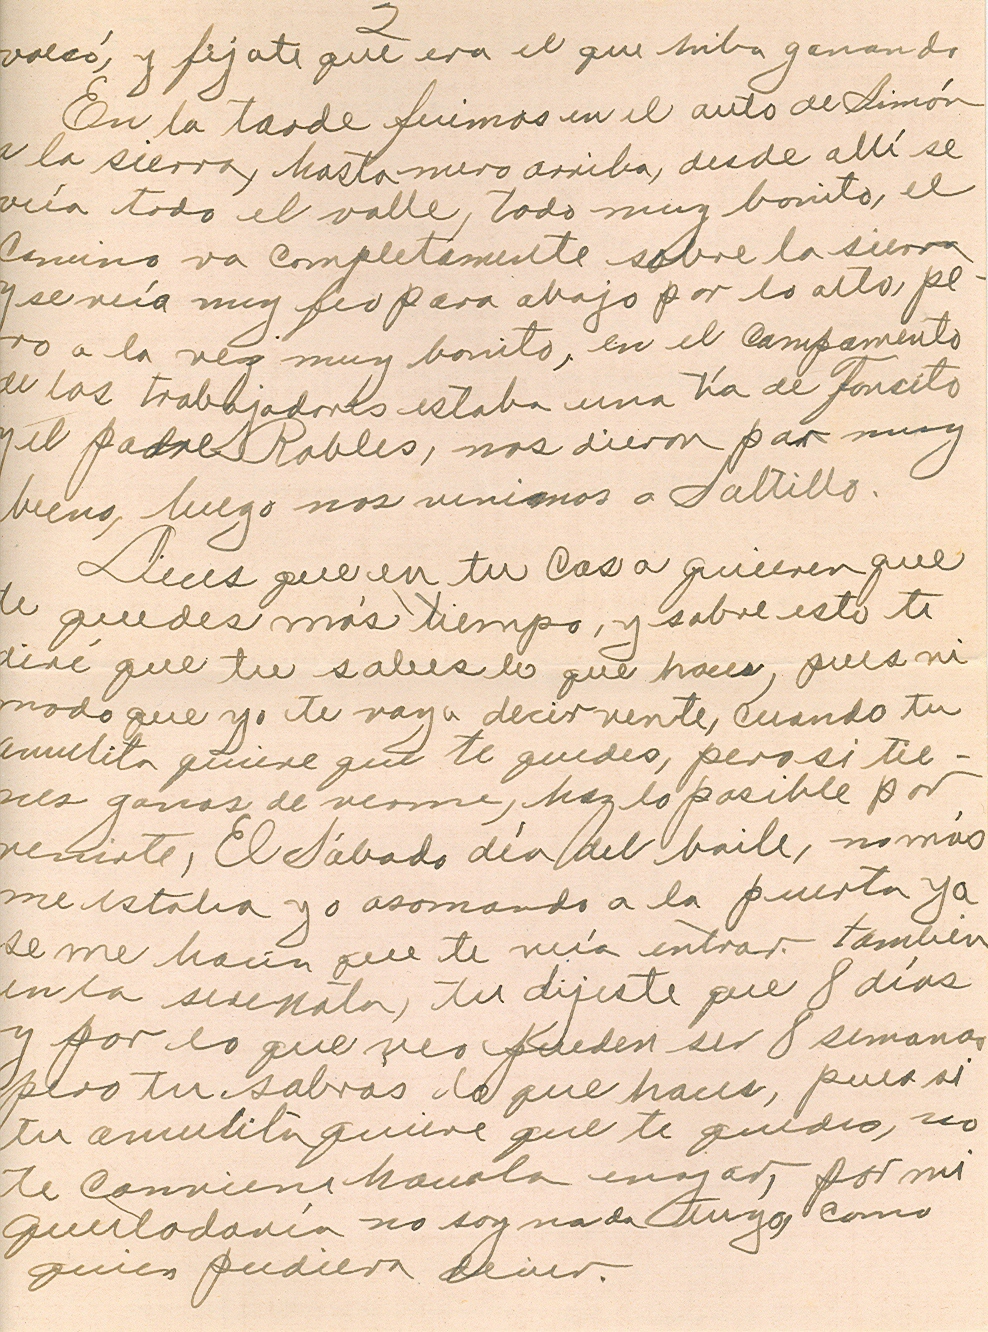 2
volcó, y fijate que era el que hiba ganando
En la tarde fuimos en el auto de Simón
a la sierra, hasta mero arriba, desde allí se
veía todo el valle, todo muy bonito, el
Camino va completamente sobre la sierra
y se veía muy feo para abajo por lo alto, pe-
ro a la vez muy bonito, en el campamento
de los trabajadores estaba una tía de Foncito
y el padre Robles, nos dieron pan muy
bueno, luego nos venimos a Saltillo.
Dices que en tu Casa quieren que
te quedes más tiempo, y sobre esto te
diré que tu sabes lo que haces, pues ni
modo que yo te vaya decir vente, cuando tu
amelita quiere que te quedes, pero si tie-
nes ganas de verme, haz lo posible por
venirte, El Sábado día del baile, no más
me estaba yo asomando a la puerta ya
se me hacía que te veía entrar. también
en la serenata, tu dijeste que 8 días
y por lo que veo pueden ser 8 semanas
pero tu sabrás lo que haces, pues si
tu amelita quiere que te quedes, no
te conviene hacerla enojar, por mi
que todavía no soy nada tuyo, como
quien pudiera decir.